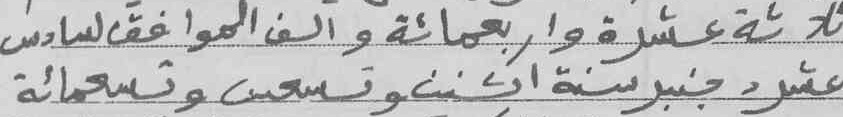 ثلاثة عشرة واربعمائة والف الموافق لسادس
عشر دجنبر سنة اثنين وتسعين وتسعمائة